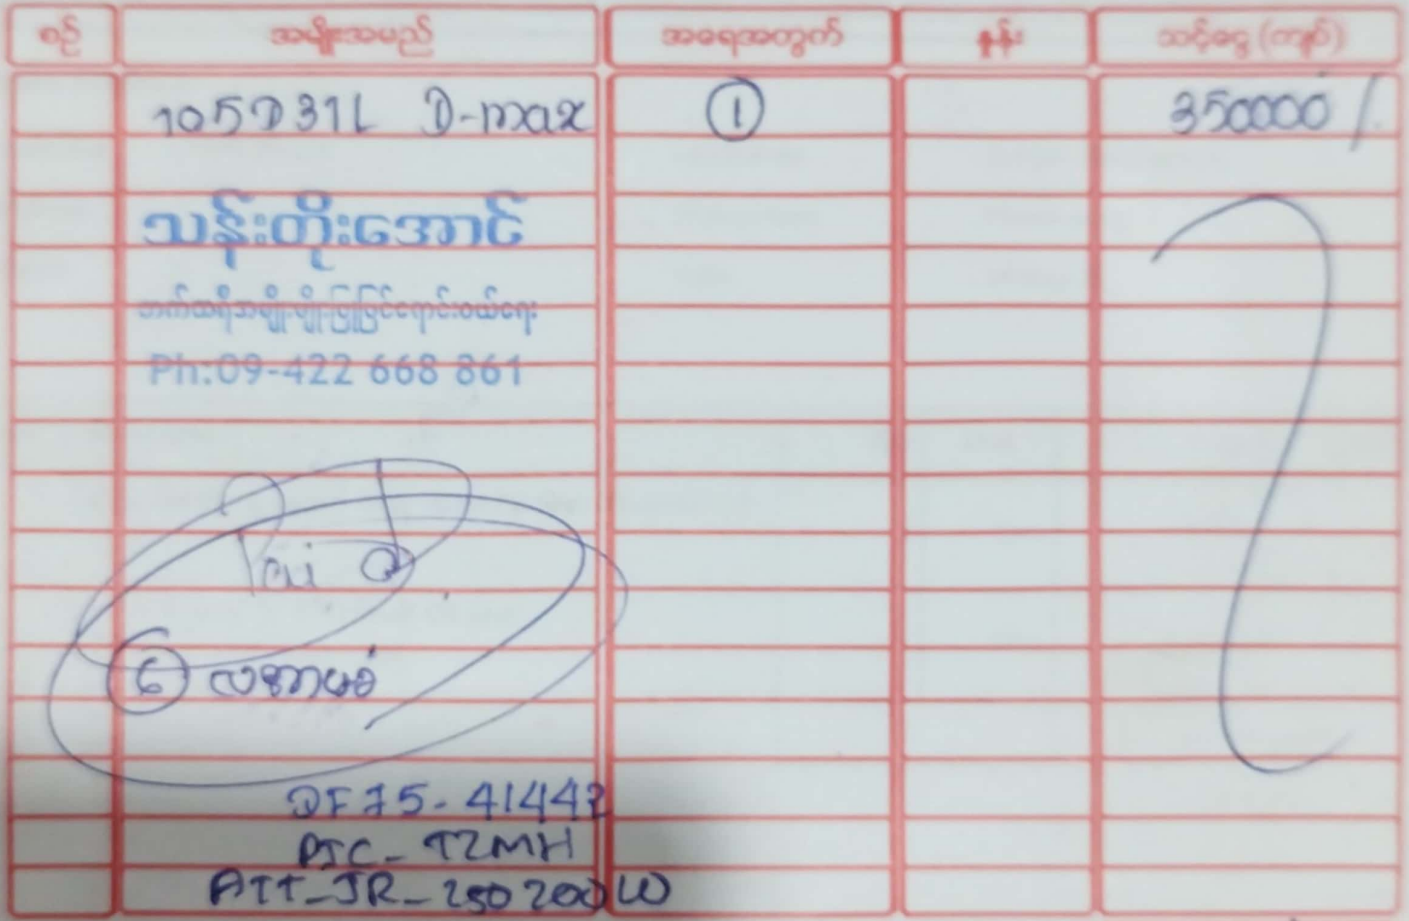 စဉ် အမျိုးအမည် အရေအတွက် နှုန်း သင့်ငွေ (ကျပ်)
105D31L D-max ① 350000/
သန်းတိုးအောင်
ဘက်ထရီအမျိုးမျိုးပြုပြင်ရောင်းဝယ်ရေး
Ph:09-422 668 861
Paid
⑥ လအာမခံ
DF75-41442
PJC-TZMH
ATT-JR-250200W